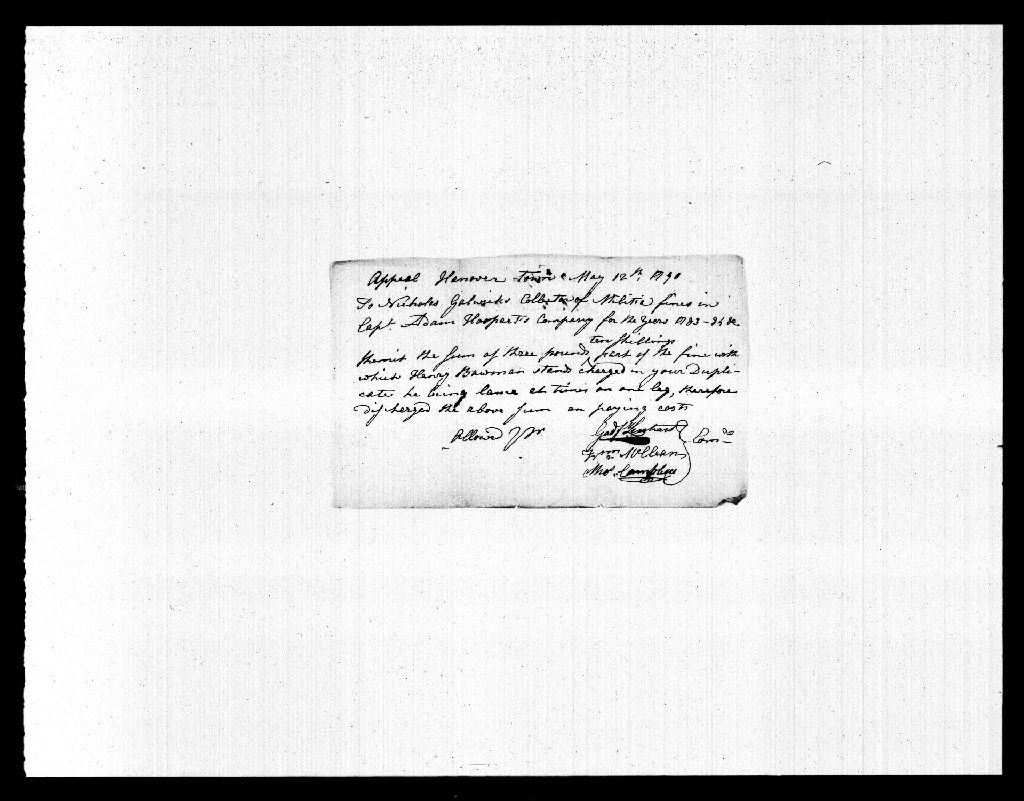 Appeal Hanover Town May 12th 1790
To Nicholas Gelwicks Collector of Militia fines in
Capt Adam Hoopart's Company for the Years 1783-84 &c
ten Shillings
Remit the Sum of three pounds part of the fine with
which Henry Bawman stands charged in your Dupli-
cate he being lame at times on one leg, therefore
discharged the above sum on paying costs
Allowed
Godf Lenhart
Wm McClean Coms
Thos Campbell